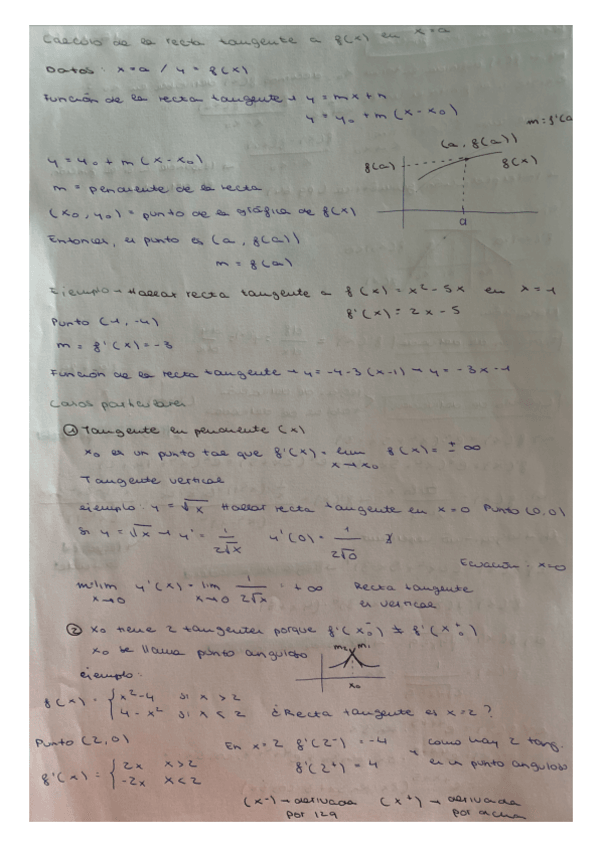 Cálculo de la recta tangente a f(x) en x=a
Datos: x=a / y = f(x)
Función de la recta tangente → y = mx+n
y = y₀ + m (x-x₀)
m=f'(a
(a, f(a))
f(a)
f(x)
a
y = y₀ + m (x-x₀)
m = pendiente de la recta
(x₀, y₀) = punto de la gráfica de f(x)
Entonces, el punto es (a, f(a))
m = f(a)
Ejemplo → Hallar recta tangente a f(x) = x²-5x en x=1
f'(x) = 2x-5
Punto (1, -4)
m = f'(x) = -3
Función de la recta tangente → y = -4-3(x-1) → y = -3x-1
Casos particulares
① Tangente en pendiente (x)
x₀ es un punto tal que f'(x) = lim f(x) = ± ∞
x→x₀
Tangente vertical
ejemplo: y = √x Hallar recta tangente en x=0 Punto (0,0)
Si y = √x → y' = 1/2√x y'(0) = 1/2√0 ∄
Ecuación: x=0
m=lim y'(x) = lim 1/2√x = +∞ Recta tangente
x→0 x→0 es vertical
② x₀ tiene 2 tangentes porque f'(x₀⁻) ≠ f'(x₀⁺)
x₀ se llama punto anguloso
m₂ m₁
x₀
ejemplo:
f(x) = { x²-4 si x > 2
4-x² si x < 2 ¿Recta tangente es x=2?
Punto (2,0) En x=2 f'(2⁻) = -4 como hay 2 tang.
f'(2⁺) = 4 es un punto anguloso
f'(x) = { 2x x>2
-2x x<2
(x⁻) → derivada (x⁺) → derivada
por izq por dcha